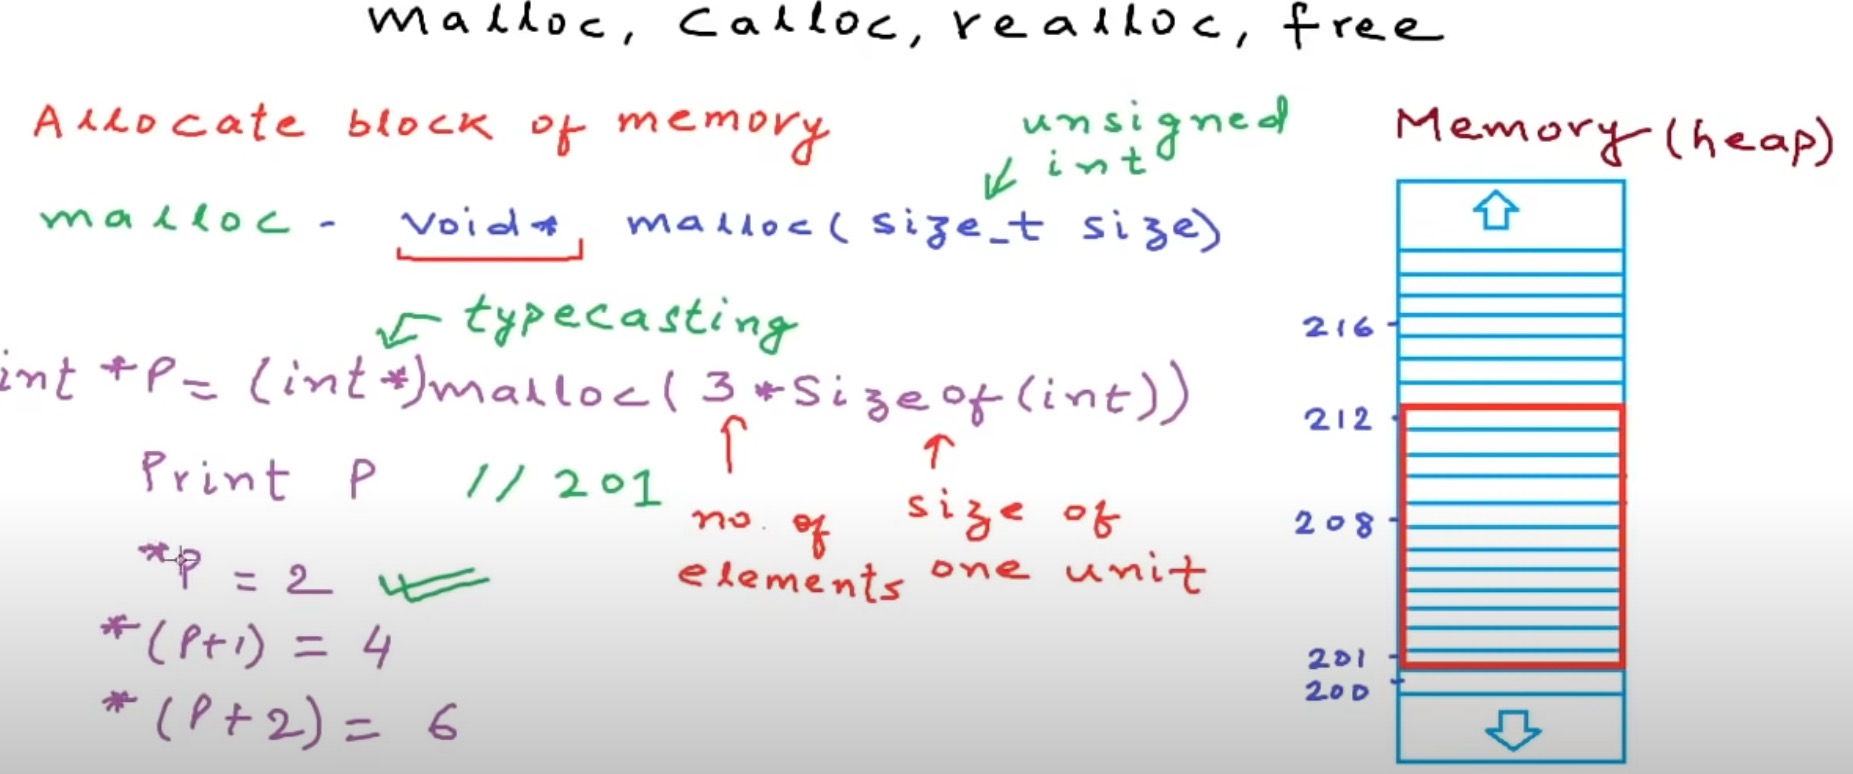 malloc, calloc, realloc, free
Allocate block of memory
unsigned
int
malloc - void* malloc(size_t size)
typecasting
int *P = (int*)malloc(3*sizeof(int))
Print P // 201
no. of
elements
size of
one unit
*P = 2
*(P+1) = 4
*(P+2) = 6
Memory (heap)
216
212
208
201
200